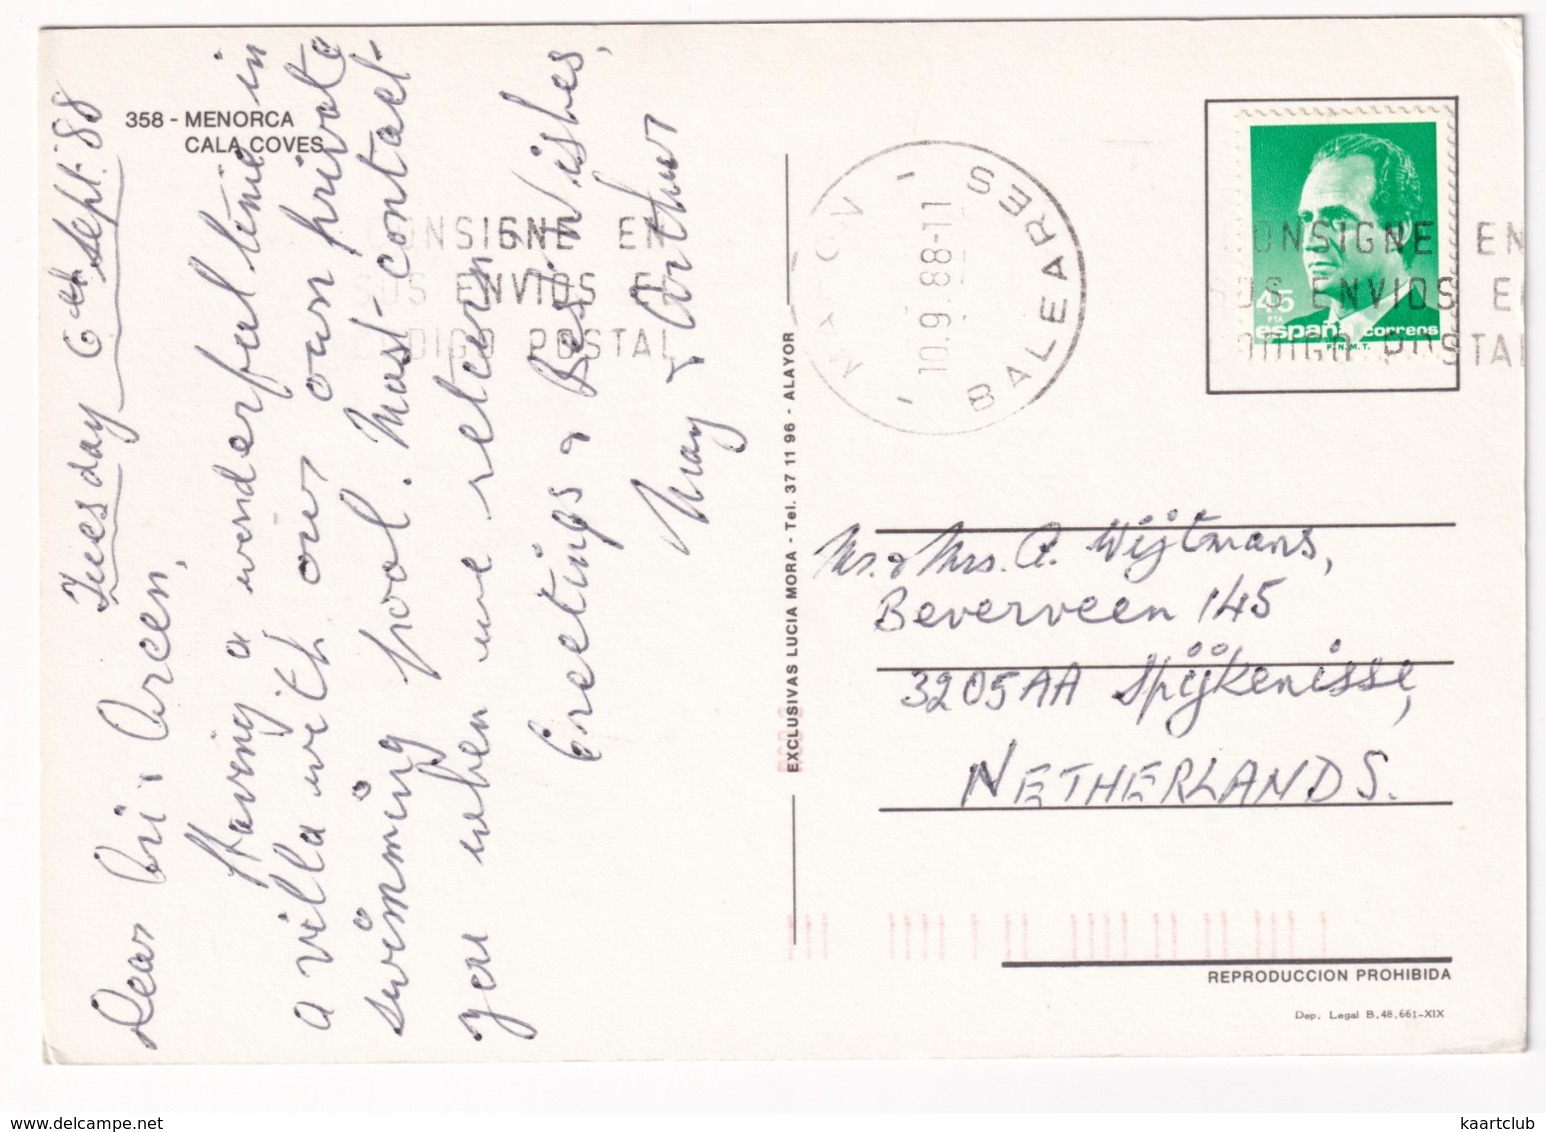 358 - MENORCA
CALA COVES
Tuesday 6th Sept. '88
Dear Cri & Arcen,
Having a wonderful time in
a villa with our own private
swimming pool. Must contact
you when we return
Greetings & Best Wishes,
May & Arthur
EXCLUSIVAS LUCIA MORA - Tel. 37 11 96 - ALAYOR
MAHON
10.9.88-11
BALEARES
CONSIGNE EN
SUS ENVIOS EL
CODIGO POSTAL
45
PTA
españa correos
F.N.M.T.
CONSIGNE EN
SUS ENVIOS EL
CODIGO POSTAL
Mr. & Mrs. A. Wijtmans,
Beverveen 145
3205AA Spijkenisse,
NETHERLANDS.
REPRODUCCION PROHIBIDA
Dep. Legal B.48.661-XIX
kaartclub
delcampe.net